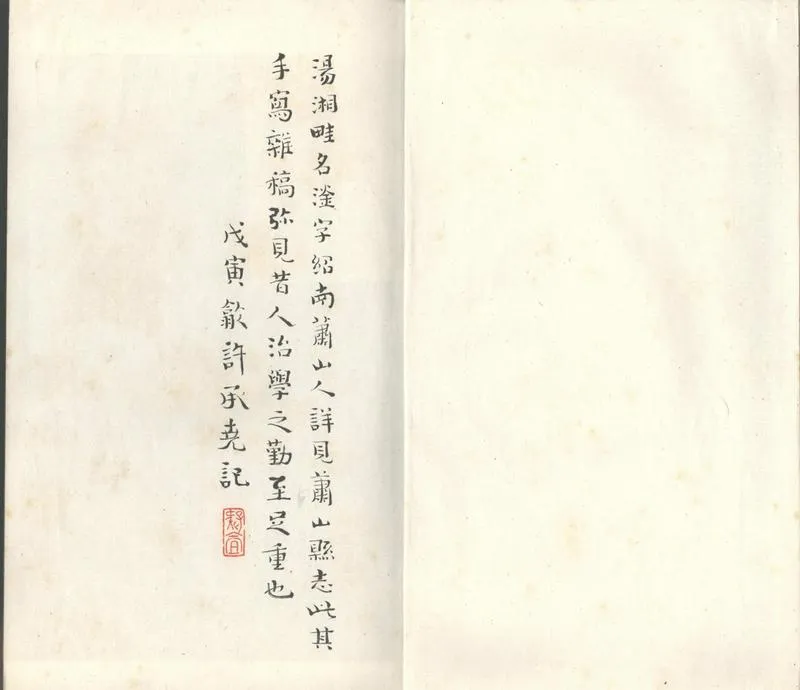 湯湘畦名滏字紹南蕭山人詳見蕭山縣志此其
手寫雜稿弥見昔人治學之勤至足重也
戊寅歙許承堯記